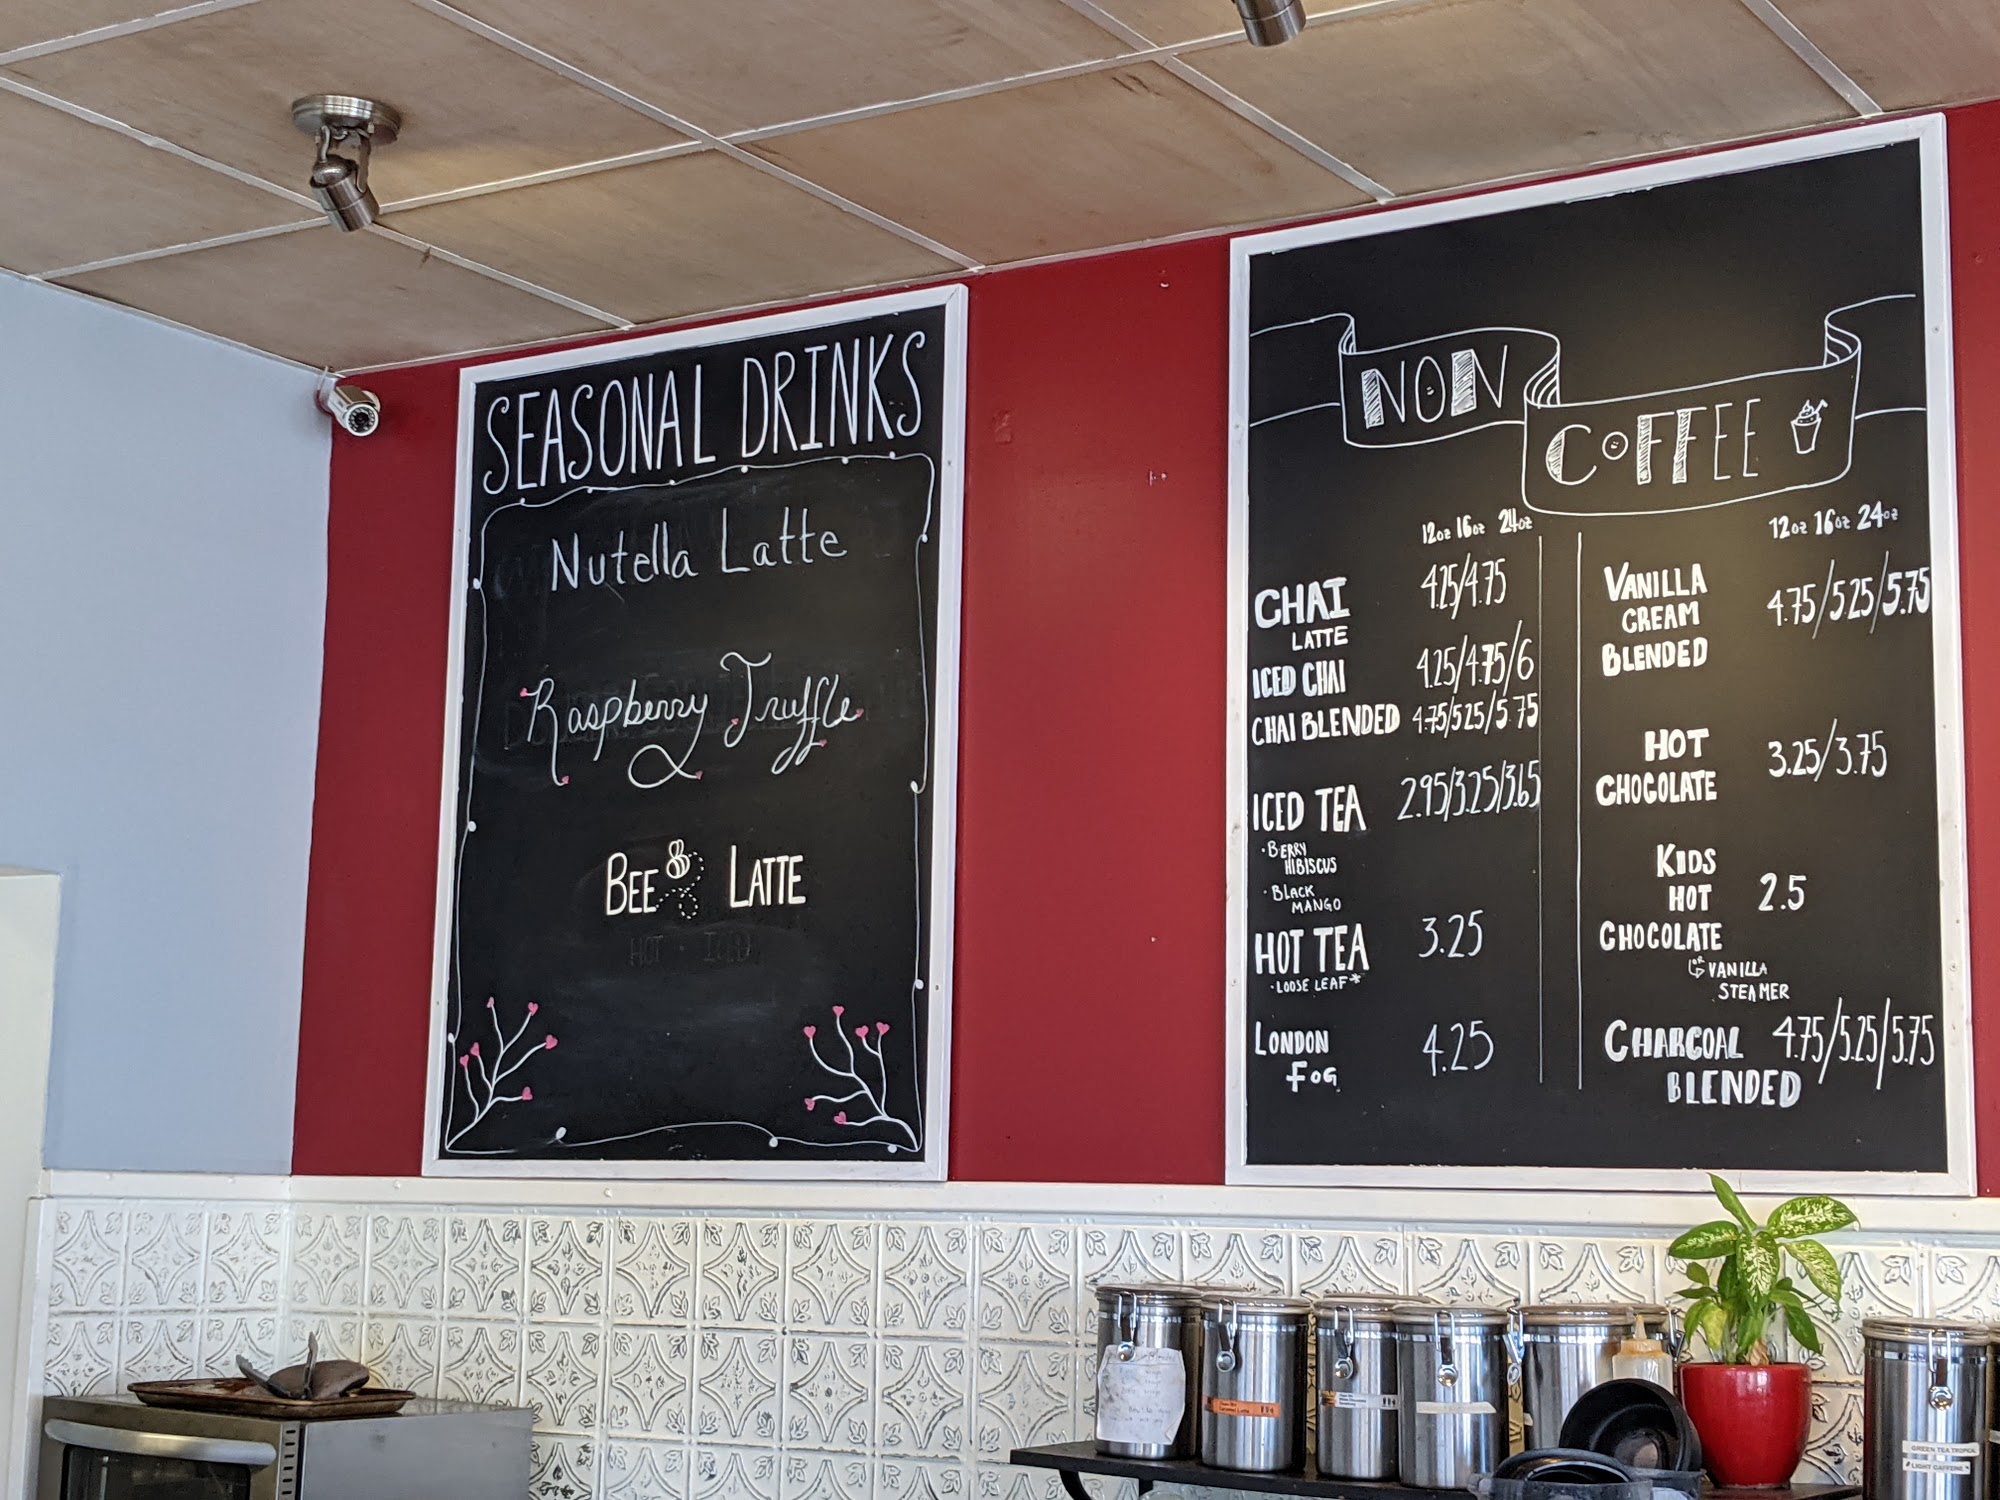 SEASONAL DRINKS
Nutella Latte
Raspberry Truffle
BEE LATTE
HOT ICED
NON
COFFEE
12oz 16oz 24oz
CHAI 4.25/4.75
LATTE
ICED CHAI 4.25/4.75/6
CHAI BLENDED 4.75/5.25/5.75
ICED TEA 2.95/3.25/3.65
· BERRY
HIBISCUS
· BLACK
MANGO
HOT TEA 3.25
· LOOSE LEAF*
LONDON 4.25
FOG
12oz 16oz 24oz
VANILLA
CREAM 4.75/5.25/5.75
BLENDED
HOT
CHOCOLATE 3.25/3.75
KIDS
HOT 2.5
CHOCOLATE
OR
VANILLA
STEAMER
CHARCOAL 4.75/5.25/5.75
BLENDED
GREEN TEA TROPICAL
LIGHT CAFFEINE